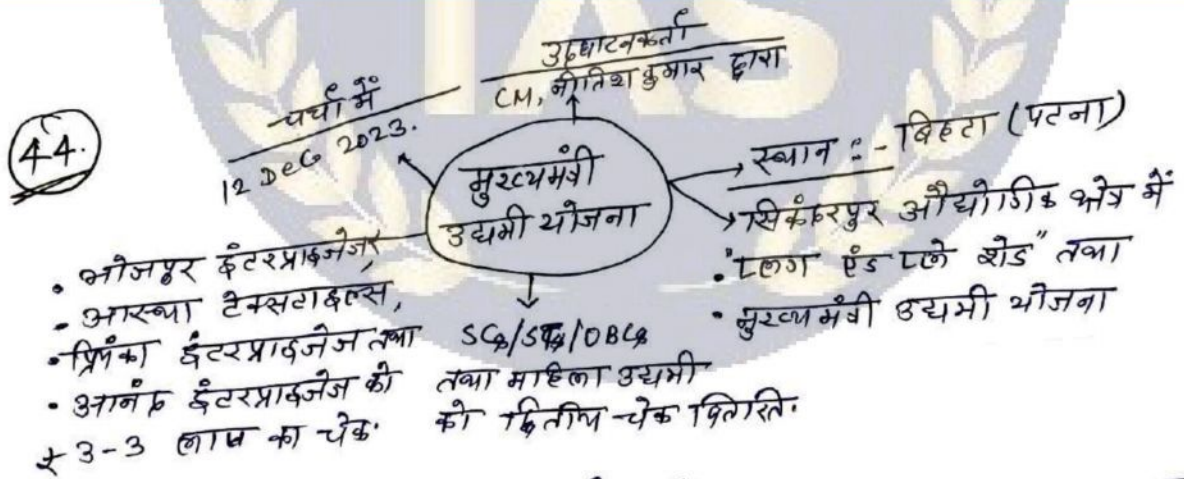 IAS
44.
चर्चा में
12 Dec 2023.
उद्घाटनकर्ता
CM, नीतिश कुमार द्वारा
मुख्यमंत्री
उद्यमी योजना
स्थान :- बिहटा (पटना)
सिकंदरपुर औद्योगिक क्षेत्र में
• "प्लग एंड प्ले शेड" तथा
• मुख्यमंत्री उद्यमी योजना
• भोजपुर इंटरप्राइजेज,
• आस्था टेक्सटाइल्स,
• प्रियंका इंटरप्राइजेज तथा
• आनंद इंटरप्राइजेज को
₹ 3-3 लाख का चेक.
SCs/STs/OBCs
तथा महिला उद्यमी
को द्वितीय चेक वितरित.